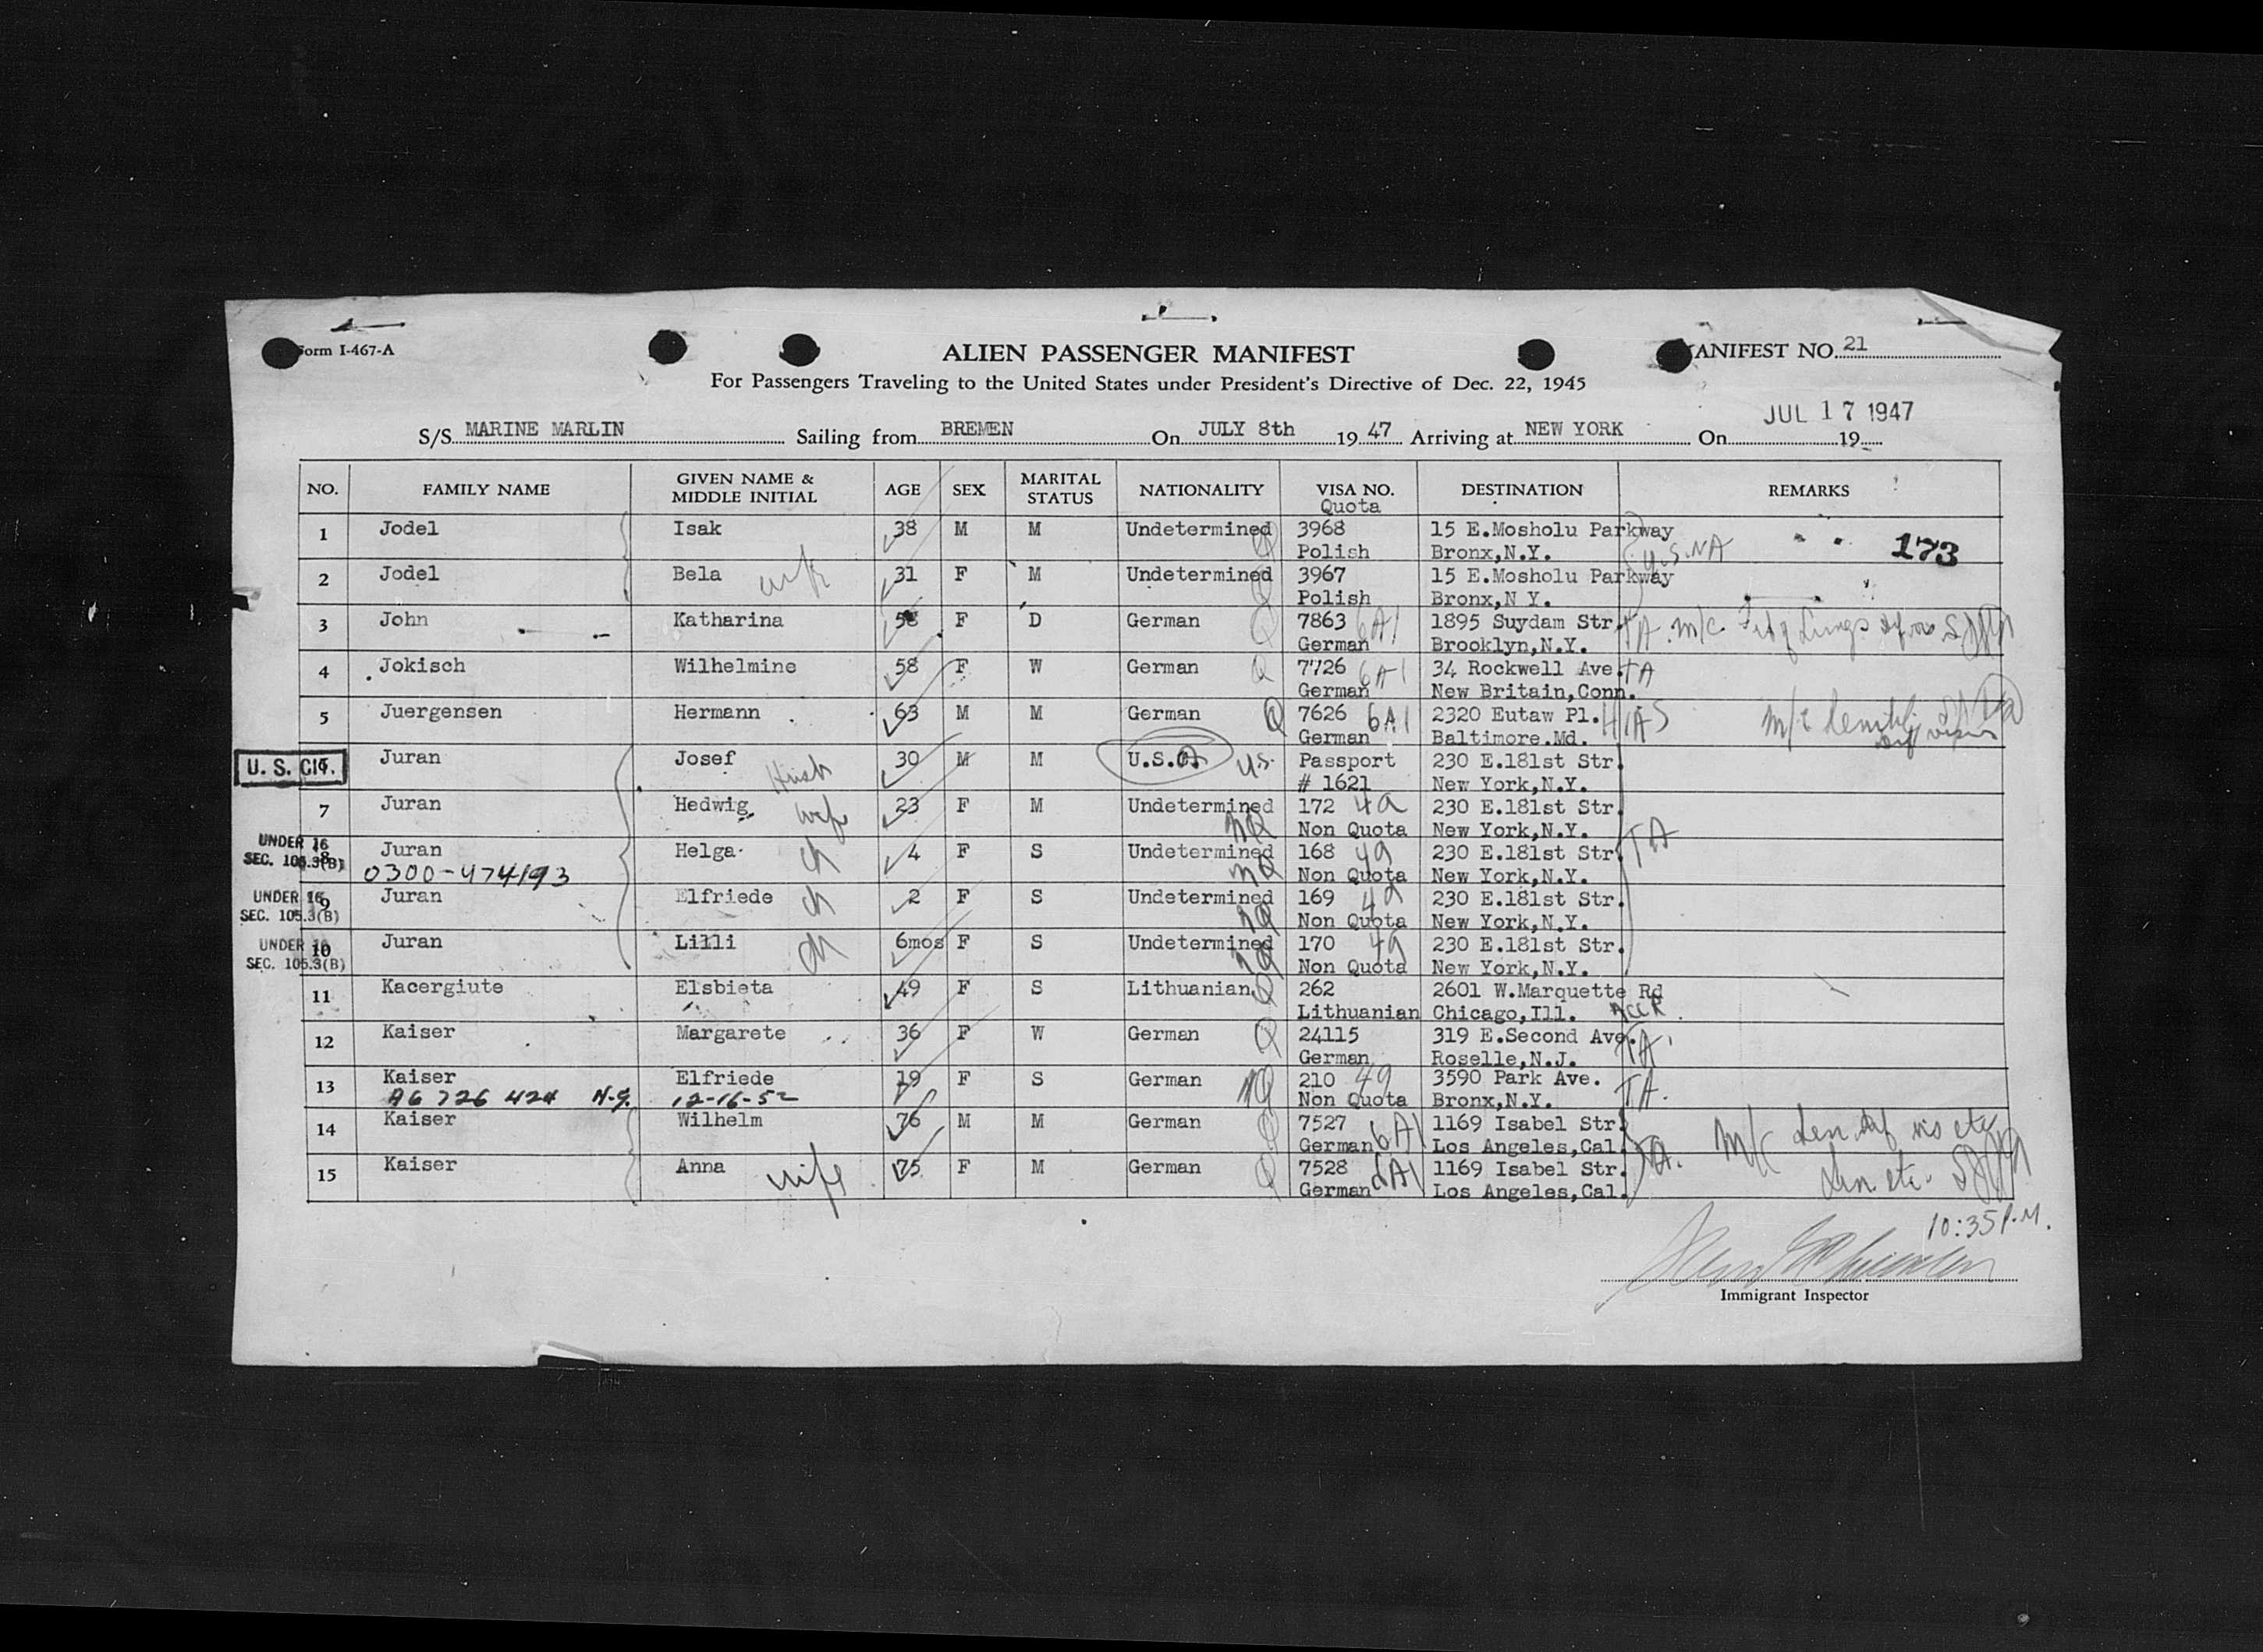 Form I-467-A
ALIEN PASSENGER MANIFEST
MANIFEST NO. 21
For Passengers Traveling to the United States under President's Directive of Dec. 22, 1945
JUL 17 1947
S/S MARINE MARLIN Sailing from BREMEN On JULY 8th 19 47 Arriving at NEW YORK On 19
NO. FAMILY NAME GIVEN NAME & MIDDLE INITIAL AGE SEX MARITAL STATUS NATIONALITY VISA NO. Quota DESTINATION REMARKS
1 Jodel Isak 38 M M Undetermined Q 3968 15 E.Mosholu Parkway
Polish Bronx,N.Y. U.S.NA 173
2 Jodel Bela wife 31 F M Undetermined Q 3967 15 E.Mosholu Parkway
Polish Bronx,N Y.
3 John Katharina F D German Q 7863 6A1 1895 Suydam Str. TA. m/c
German Brooklyn,N.Y.
4 Jokisch Wilhelmine 58 F W German Q 7726 6A1 34 Rockwell Ave. TA
German New Britain,Conn.
5 Juergensen Hermann 63 M M German Q 7626 6A1 2320 Eutaw Pl. HIAS m/c
German Baltimore.Md.
U. S. CIT. 6 Juran Josef Husb 30 M M U.S.A. US. Passport 230 E.181st Str.
# 1621 New York,N.Y.
7 Juran Hedwig wife 23 F M Undetermined NQ 172 4a 230 E.181st Str.
Non Quota New York,N.Y.
UNDER 16 SEC. 105.3(B) 8 Juran Helga ch 4 F S Undetermined NQ 168 4a 230 E.181st Str. TA
0300-474193 Non Quota New York,N.Y.
UNDER 16 SEC. 105.3(B) 9 Juran Elfriede ch 2 F S Undetermined NQ 169 4a 230 E.181st Str.
Non Quota New York,N.Y.
UNDER 16 SEC. 105.3(B) 10 Juran Lilli ch 6mos F S Undetermined NQ 170 4a 230 E.181st Str.
Non Quota New York,N.Y.
11 Kacergiute Elsbieta 49 F S Lithuanian Q 262 2601 W.Marquette Rd
Lithuanian Chicago,Ill. ACCR.
12 Kaiser Margarete 36 F W German Q 24115 319 E.Second Ave.
German Roselle,N.J. TA
13 Kaiser Elfriede 19 F S German NQ 210 4a 3590 Park Ave.
A6 726 424 N.Y. 12-16-52 Non Quota Bronx,N.Y. TA.
14 Kaiser Wilhelm 76 M M German Q 7527 6A1 1169 Isabel Str.
German Los Angeles,Cal. TA. M/C
15 Kaiser Anna wife 75 F M German Q 7528 6A1 1169 Isabel Str.
German Los Angeles,Cal.
10:35 P.M.
Immigrant Inspector